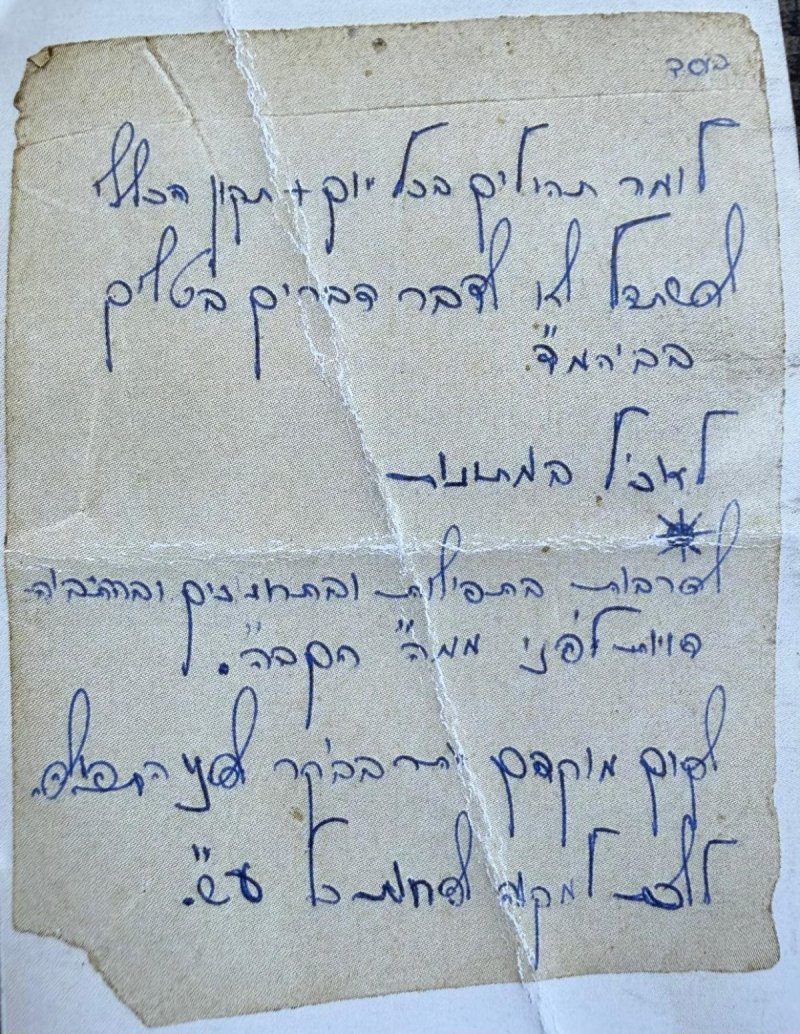 בסד
לומר תהילים בכל יום + תקון הכללי
להשתדל לא לדבר דברים בטלים
בביהמ"ד
לאכול במתינות
להרבות בתפילות ובתחנונים ובהתבוד
דויות לפני ממ"ה הקב"ה.
לקום מוקדם יותר בבקר לפני התפילה.
ללכת למקוה לפחות כל ע"ש.